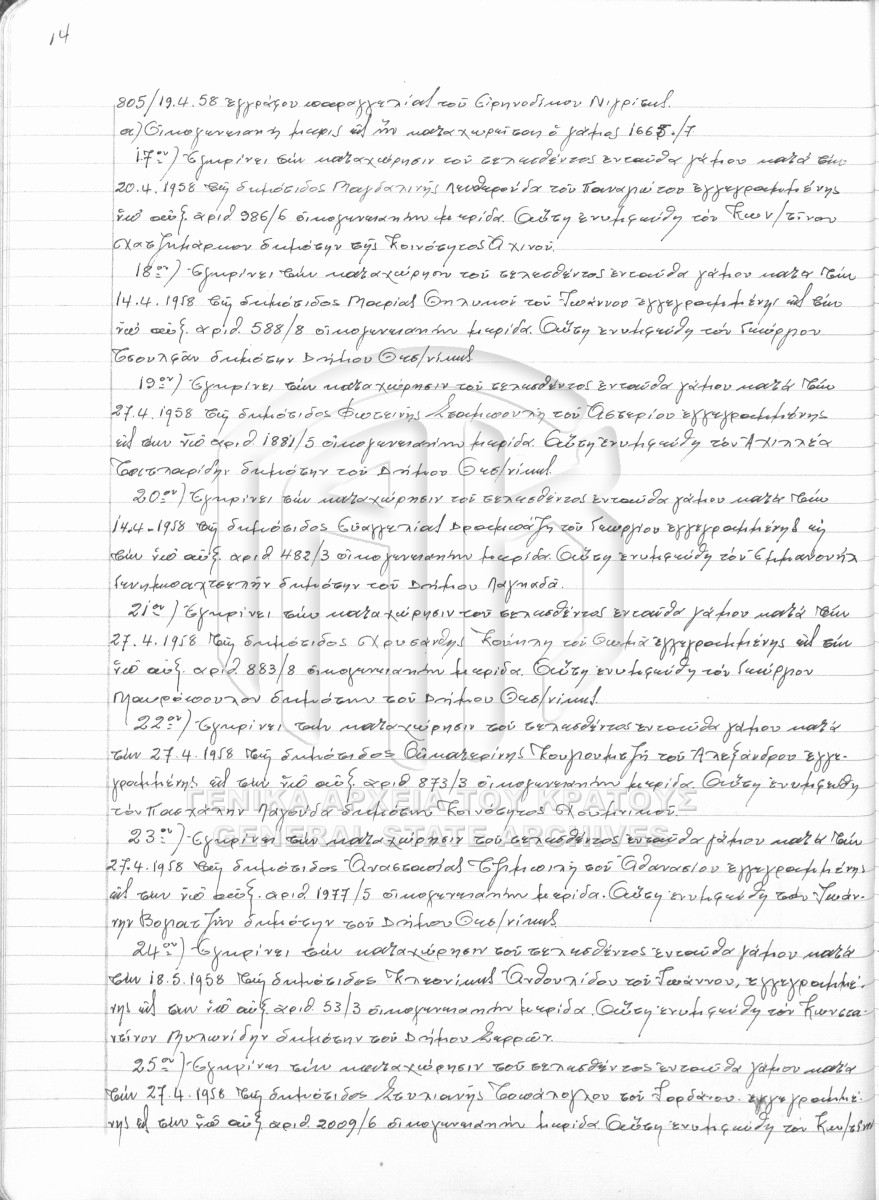 14
805/19.4.58 ἐγγράφου παραγγελίας τοῦ Εἰρηνοδίκου Νιγρίτης.
α) Οἰκογενειακὴ μερὶς εἰς ἣν καταχωρεῖται ὁ γάμος 1665./7
17ον) Ἐγκρίνει τὴν καταχώρησιν τοῦ τελεσθέντος ἐνταῦθα γάμου κατὰ τὴν
20.4.1958 τῆς δημότιδος Μαγδαληνῆς Λευθερούδα τοῦ Παναγιώτου ἐγγεγραμμένης
ὑπ' αὔξ. ἀριθ. 986/6 οἰκογενειακὴν μερίδα. Αὕτη ἐνυμφεύθη τὸν Κων/τῖνον
Χατζημάρκον δημότην τῆς Κοινότητος Ἀχινοῦ.
18ον) Ἐγκρίνει τὴν καταχώρησιν τοῦ τελεσθέντος ἐνταῦθα γάμου κατὰ τὴν
14.4.1958 τῆς δημότιδος Μαρίας Θηλυκοῦ τοῦ Ἰωάννου ἐγγεγραμμένης εἰς τὴν
ὑπ' αὔξ. ἀριθ. 588/8 οἰκογενειακὴν μερίδα. Αὕτη ἐνυμφεύθη τὸν Γεώργιον
Τσουλφᾶν δημότην Δήμου Θεσ/νίκης
19ον) Ἐγκρίνει τὴν καταχώρησιν τοῦ τελεσθέντος ἐνταῦθα γάμου κατὰ τὴν
27.4.1958 τῆς δημότιδος Φωτεινῆς Σταμπουλῆ τοῦ Ἀστερίου ἐγγεγραμμένης
εἰς τὴν ὑπ' ἀριθ. 1881/5 οἰκογενειακὴν μερίδα. Αὕτη ἐνυμφεύθη τὸν Ἀχιλλέα
δημότην τοῦ Δήμου Θεσ/νίκης.
20ον) Ἐγκρίνει τὴν καταχώρησιν τοῦ τελεσθέντος ἐνταῦθα γάμου κατὰ τὴν
14.4-1958 τῆς δημότιδος Εὐαγγελίας Δραμπάζη τοῦ Γεωργίου ἐγγεγραμμένης εἰς
τὴν ὑπ' αὔξ. ἀριθ. 482/3 οἰκογενειακὴν μερίδα. Αὕτη ἐνυμφεύθη τὸν Ἐμμανουὴλ
δημότην τοῦ Δήμου Λαγκαδᾶ.
21ον) Ἐγκρίνει τὴν καταχώρησιν τοῦ τελεσθέντος ἐνταῦθα γάμου κατὰ τὴν
27.4.1958 τῆς δημότιδος Χρυσάνθης Κούκλη τοῦ Θωμᾶ ἐγγεγραμμένης εἰς τὴν
ὑπ' αὔξ. ἀριθ. 883/8 οἰκογενειακὴν μερίδα. Αὕτη ἐνυμφεύθη τὸν Γεώργιον
Μαυρόπουλον δημότην τοῦ Δήμου Θεσ/νίκης.
22ον) Ἐγκρίνει τὴν καταχώρησιν τοῦ τελεσθέντος ἐνταῦθα γάμου κατὰ
τὴν 27.4.1958 τῆς δημότιδος Αἰκατερίνης Κουγιουμτζῆ τοῦ Ἀλεξάνδρου ἐγγε-
γραμμένης εἰς τὴν ὑπ' αὔξ. ἀριθ 873/3 οἰκογενειακὴν μερίδα. Αὕτη ἐνυμφεύθη
τὸν Πασχάλην Λαγούδα δημότην Κοινότητος Χουμνικοῦ.
ΓΕΝΙΚΑ ΑΡΧΕΙΑ ΤΟΥ ΚΡΑΤΟΥΣ
GENERAL STATE ARCHIVES
23ον) Ἐγκρίνει τὴν καταχώρησιν τοῦ τελεσθέντος ἐνταῦθα γάμου κατὰ τὴν
27.4.1958 τῆς δημότιδος Ἀναστασίας Τζιμπιλῆ τοῦ Ἀθανασίου ἐγγεγραμμένης
εἰς τὴν ὑπ' αὔξ. ἀριθ. 1977/5 οἰκογενειακὴν μερίδα. Αὕτη ἐνυμφεύθη τὸν Ἰωάν-
νην Βογιατζῆν δημότην τοῦ Δήμου Θεσ/νίκης
24ον) Ἐγκρίνει τὴν καταχώρησιν τοῦ τελεσθέντος ἐνταῦθα γάμου κατὰ
τὴν 18.5.1958 τῆς δημότιδος Κλεονίκης Ἀνθουλίδου τοῦ Ἰωάννου, ἐγγεγραμμέ-
νης εἰς τὴν ὑπ' αὔξ. ἀριθ. 53/3 οἰκογενειακὴν μερίδα. Αὕτη ἐνυμφεύθη τὸν Κωνστα-
ντῖνον Μυλωνίδην δημότην τοῦ Δήμου Σερρῶν.
25ον) Ἐγκρίνει τὴν καταχώρησιν τοῦ τελεσθέντος ἐνταῦθα γάμου κατὰ
τὴν 27.4.1958 τῆς δημότιδος Στυλιανῆς Τοπάλογλου τοῦ Ἰορδάνου ἐγγεγραμμέ-
νης εἰς τὴν ὑπ' αὔξ. ἀριθ. 2009/6 οἰκογενειακὴν μερίδα Αὕτη ἐνυμφεύθη τὸν Κων/τῖνον